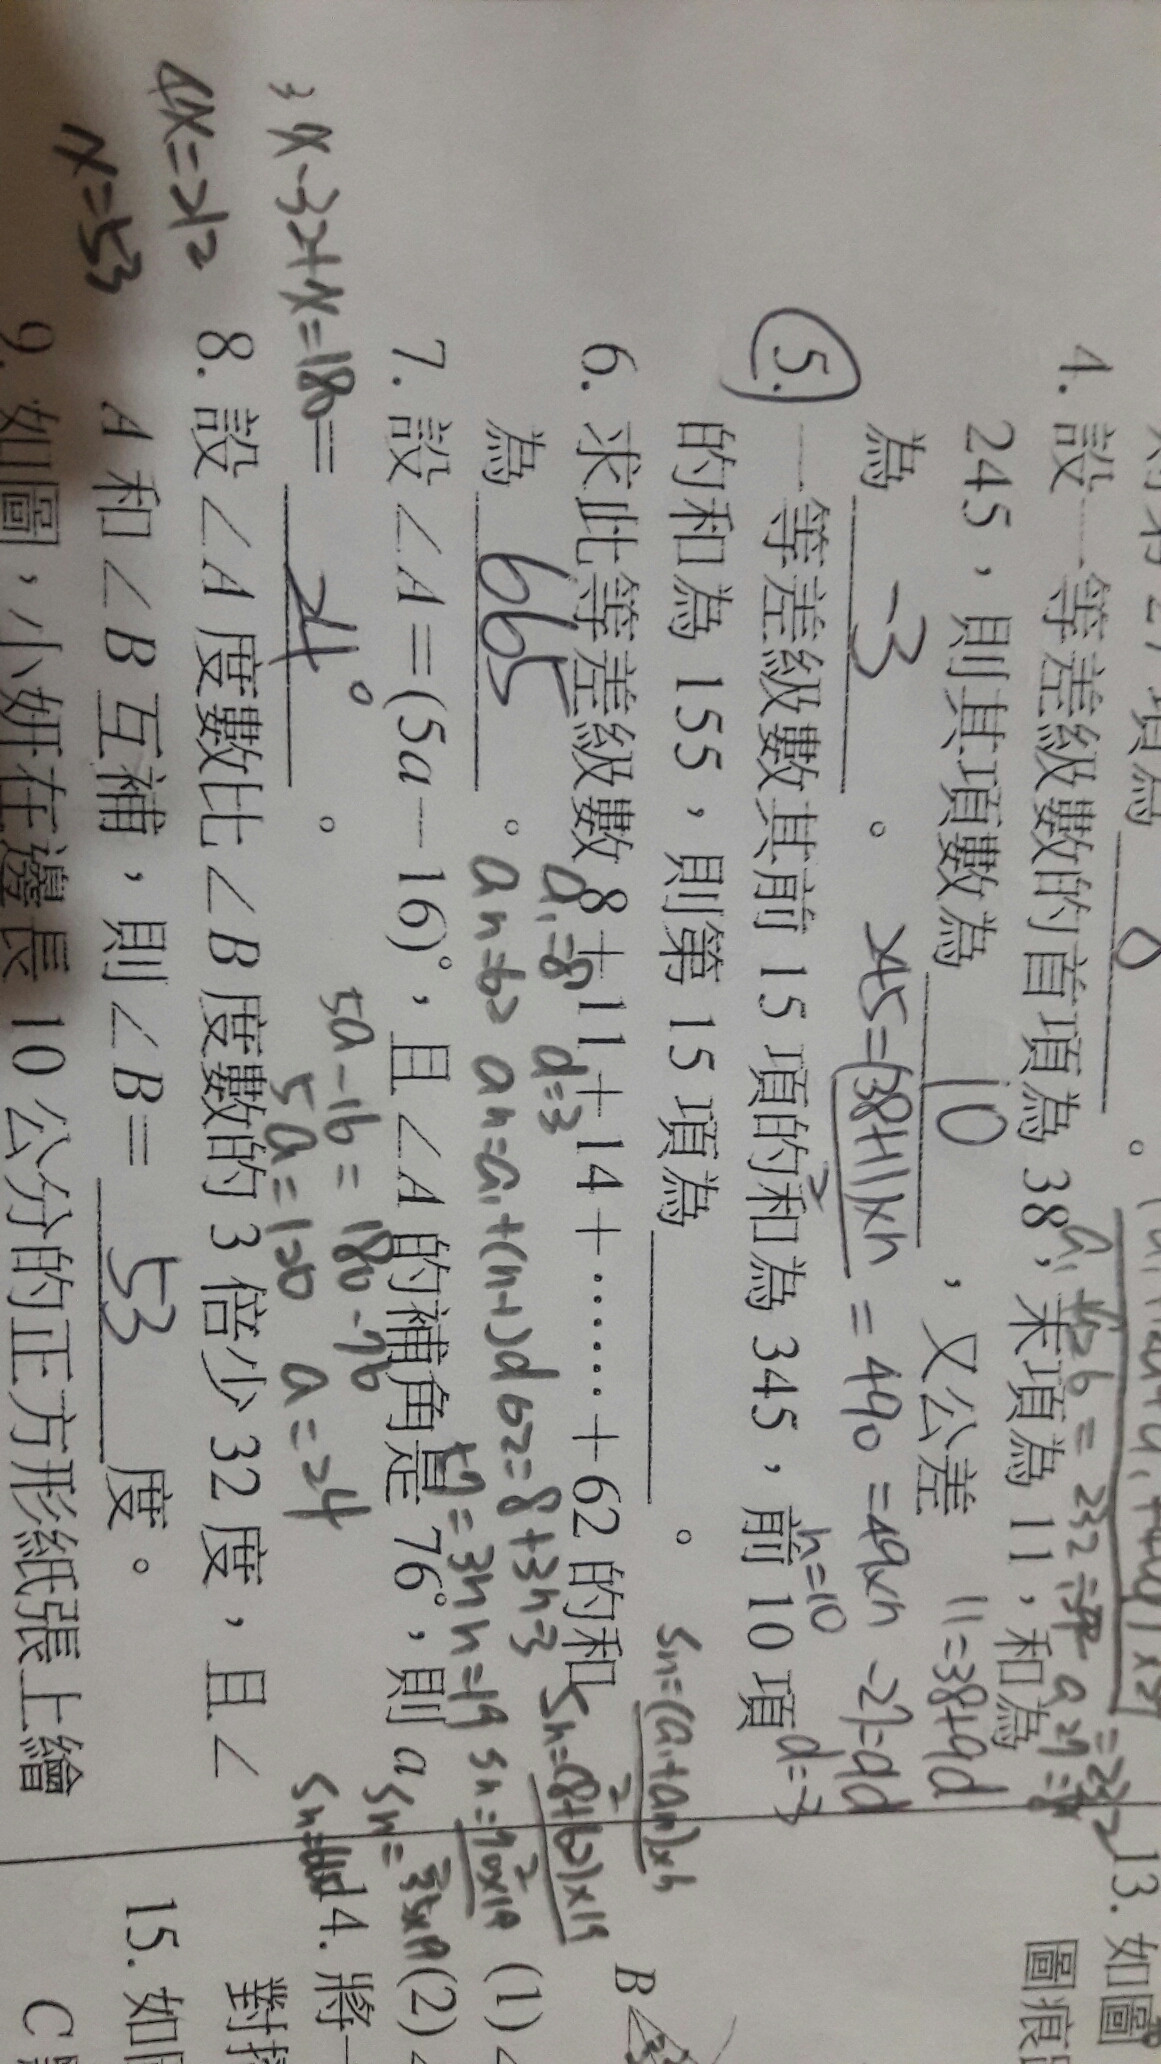 4. 設一等差級數的首項為 38,末項為 11,和為
245,則其項數為 10 ,又公差
為 -3 。
245=(38+11)×n = 490 = 49×n
2
n=10
11=38+9d
-27=9d
d=-3
5. 一等差級數其前 15 項的和為 345,前 10 項
的和為 155,則第 15 項為 。
Sn=(a₁+an)×n
2
6. 求此等差級數 8+11+14+……+62 的和
為 665 。
a₁=8 d=3
an=62 an=a₁+(n-1)d 62=8+3n-3
57=3n n=19
Sn=(8+62)×19
2
Sn=70×19
2
Sn=35×19
7. 設∠A=(5a-16)°,且∠A 的補角是 76°,則 a
= 24° 。
5a-16=180-76
5a=120 a=24
8. 設∠A 度數比∠B 度數的 3 倍少 32 度,且∠
A 和∠B 互補,則∠B= 53 度。
3x-32+x=180
4x=212
x=53
9. 如圖,小妍在邊長 10 公分的正方形紙張上繪
13. 如圖
圖痕
B
(1)
(2)
14. 將一
對
15. 如
C